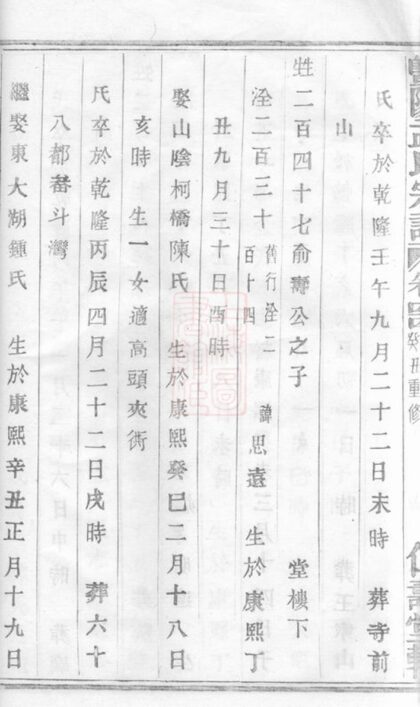 氏卒於乾隆壬午九月二十二日未時 葬寺前
山
甡二百四十七俞壽公之子 堂樓下
淦二百三十 舊行淦二百十四 諱思遠 生於康熙丁
丑九月三十日酉時
娶山陰柯橋陳氏 生於康熙癸巳二月十八日
亥時 生一女適高頭夾衖
氏卒於乾隆丙辰四月二十二日戌時 葬六十
八都番斗灣
繼娶東大湖鍾氏 生於康熙辛丑正月十九日